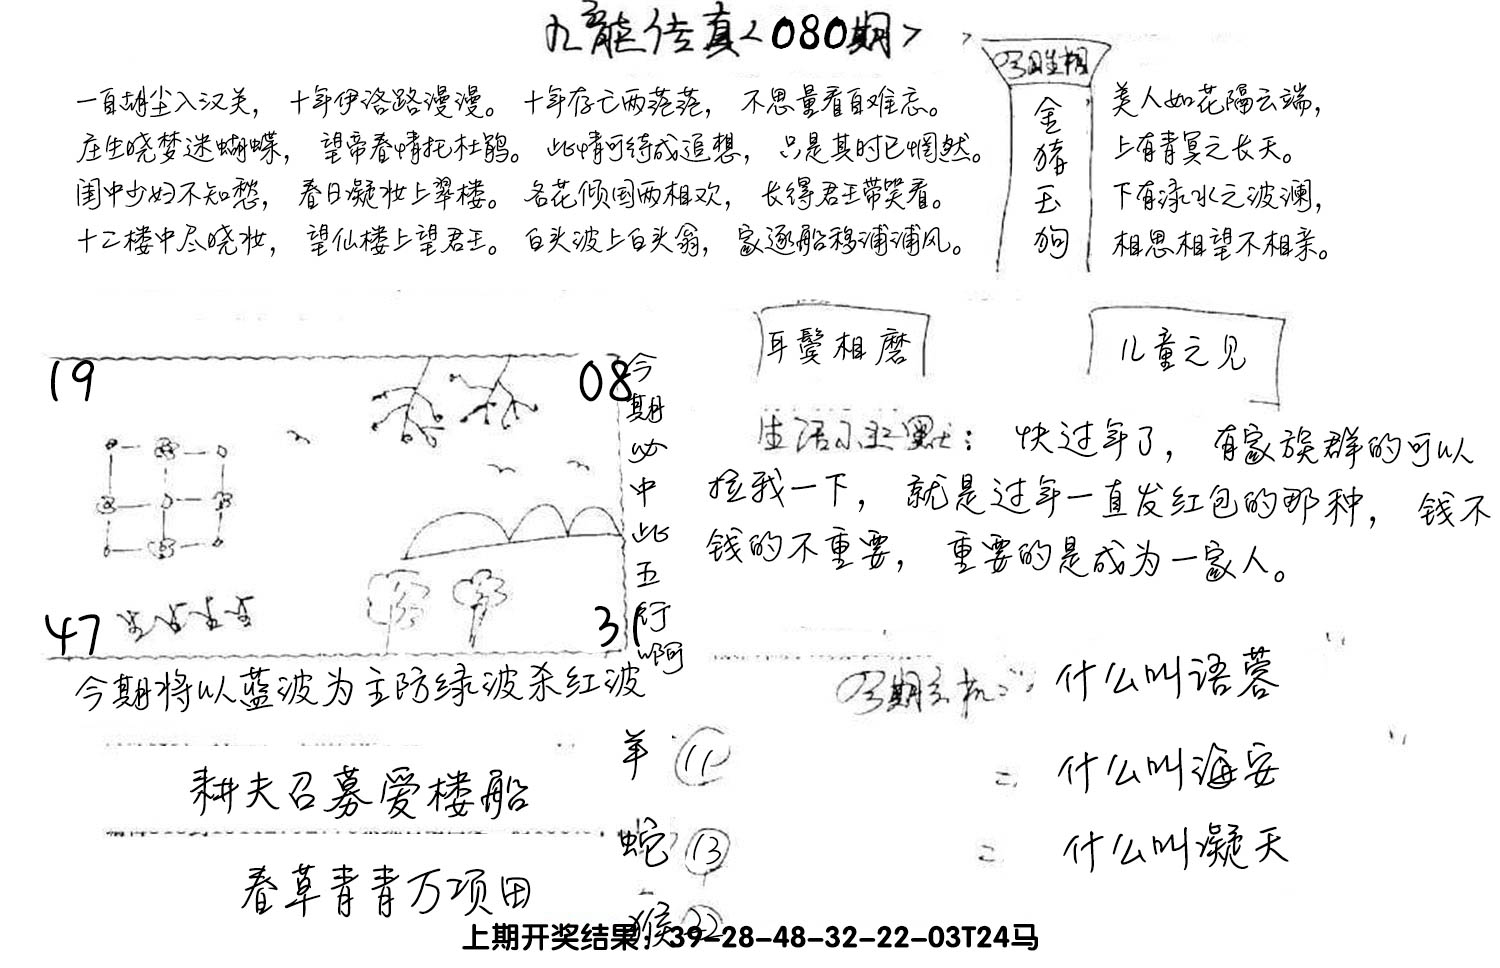 九龙传真<080期>
一自胡尘入汉关，十年伊洛路漫漫。十年存亡两茫茫，不思量看自难忘。
庄生晓梦迷蝴蝶，望帝春情托杜鹃。此情可待成追想，只是其时已惘然。
闺中少妇不知愁，春日凝妆上翠楼。名花倾国两相欢，长得君王带笑看。
十二楼中尽晓妆，望仙楼上望君王。白头波上白头翁，家逐船移浦浦风。
金猪玉狗
美人如花隔云端，
上有青冥之长天。
下有渌水之波澜，
相思相望不相亲。
19
08
47
31
今期必中此五行啊
耳鬓相磨
儿童之见
生活小幽默：快过年了，有家族群的可以
拉我一下，就是过年一直发红包的那种，钱不
钱的不重要，重要的是成为一家人。
今期将以蓝波为主防绿波杀红波
耕夫召募爱楼船
春草青青万项田
羊 11
蛇 13
猴 22
今期玄机：什么叫语蓉
二 什么叫海安
二 什么叫凝天
上期开奖结果：39-28-48-32-22-03T24马